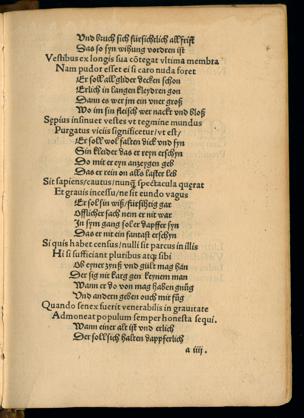 Vnd bruch sich fürsichtlich all frist
Das so syn wißung vordren ist
Vestibus ex longis sua cōtegat vltima membra
Nam pudor esset ei si caro nuda foret
Er soll all glider decken schon
Erlich in langen kleydren gon
Dann es wer jm ein vner groß
Wo im sin fleisch wer nackt vnd bloß
Sępius insinuet vestes vt tegmine mundus
Purgatus viciis significetur/vt est/
Er sol wol falten dick vnd syn
Sin kleider das er reyn erschyn
Do mit er eyn anzeygen geb
Das er rein on alls laster leb
Sit sapiens/cautus/nunq̃ spectacula quęrat
Et grauis incessu/ne sit eundo vagus
Er sol sin wiß/fürsihtig gar
Offlicher sach nem er nit war
In sym gang sol er dapffer syn
Das er nit ein fantast erschyn
Si quis habet census/nulli sit parcus in illis
Hi si sufficiant pluribus atq̨ sibi
Ob eyner zynß vnd gült mag hān
Der sig nit karg gen keynem man
Wann er do von mag haben gnůg
Vnd andern geben ouch mit fůg
Quando senex fuerit venerabilis in grauitate
Admoneat populum semper honesta sequi.
Wann einer alt ist vnd erlich
Der soll sich halten dappferlich
a iiij.